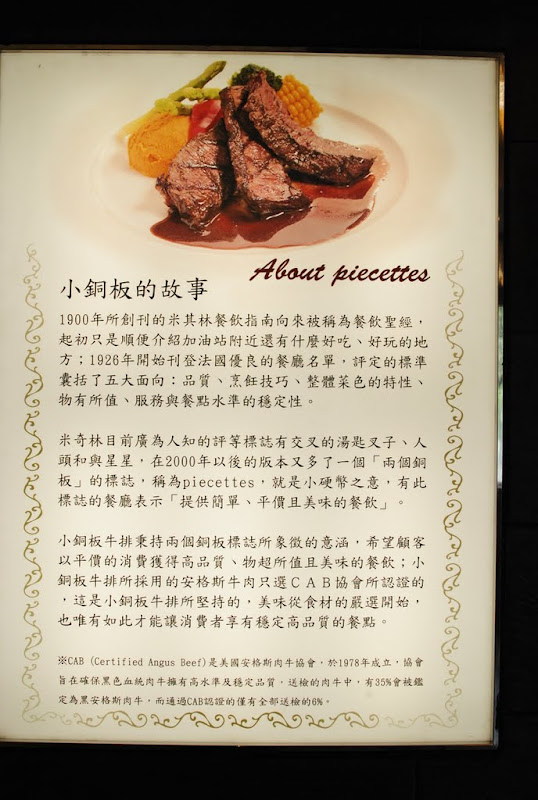 About piecettes
小銅板的故事
1900年所創刊的米其林餐飲指南向來被稱為餐飲聖經，
起初只是順便介紹加油站附近還有什麼好吃、好玩的地
方；1926年開始刊登法國優良的餐廳名單，評定的標準
囊括了五大面向：品質、烹飪技巧、整體菜色的特性、
物有所值、服務與餐點水準的穩定性。
米奇林目前廣為人知的評等標誌有交叉的湯匙叉子、人
頭和與星星，在2000年以後的版本又多了一個「兩個銅
板」的標誌，稱為piecettes，就是小硬幣之意，有此
標誌的餐廳表示「提供簡單、平價且美味的餐飲」。
小銅板牛排秉持兩個銅板標誌所象徵的意涵，希望顧客
以平價的消費獲得高品質、物超所值且美味的餐飲；小
銅板牛排所採用的安格斯牛肉只選ＣＡＢ協會所認證的
，這是小銅板牛排所堅持的，美味從食材的嚴選開始，
也唯有如此才能讓消費者享有穩定高品質的餐點。
※CAB (Certified Angus Beef)是美國安格斯肉牛協會，於1978年成立，協會
旨在確保黑色血統肉牛擁有高水準及穩定品質，送檢的肉牛中，有35%會被鑑
定為黑安格斯肉牛，而通過CAB認證的僅有全部送檢的6%。